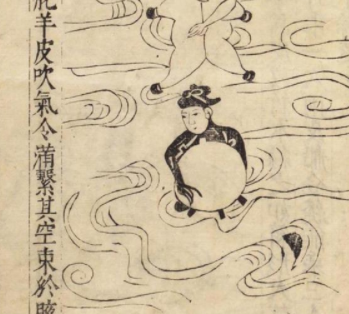 羊皮吹氣令滿繫其空束於